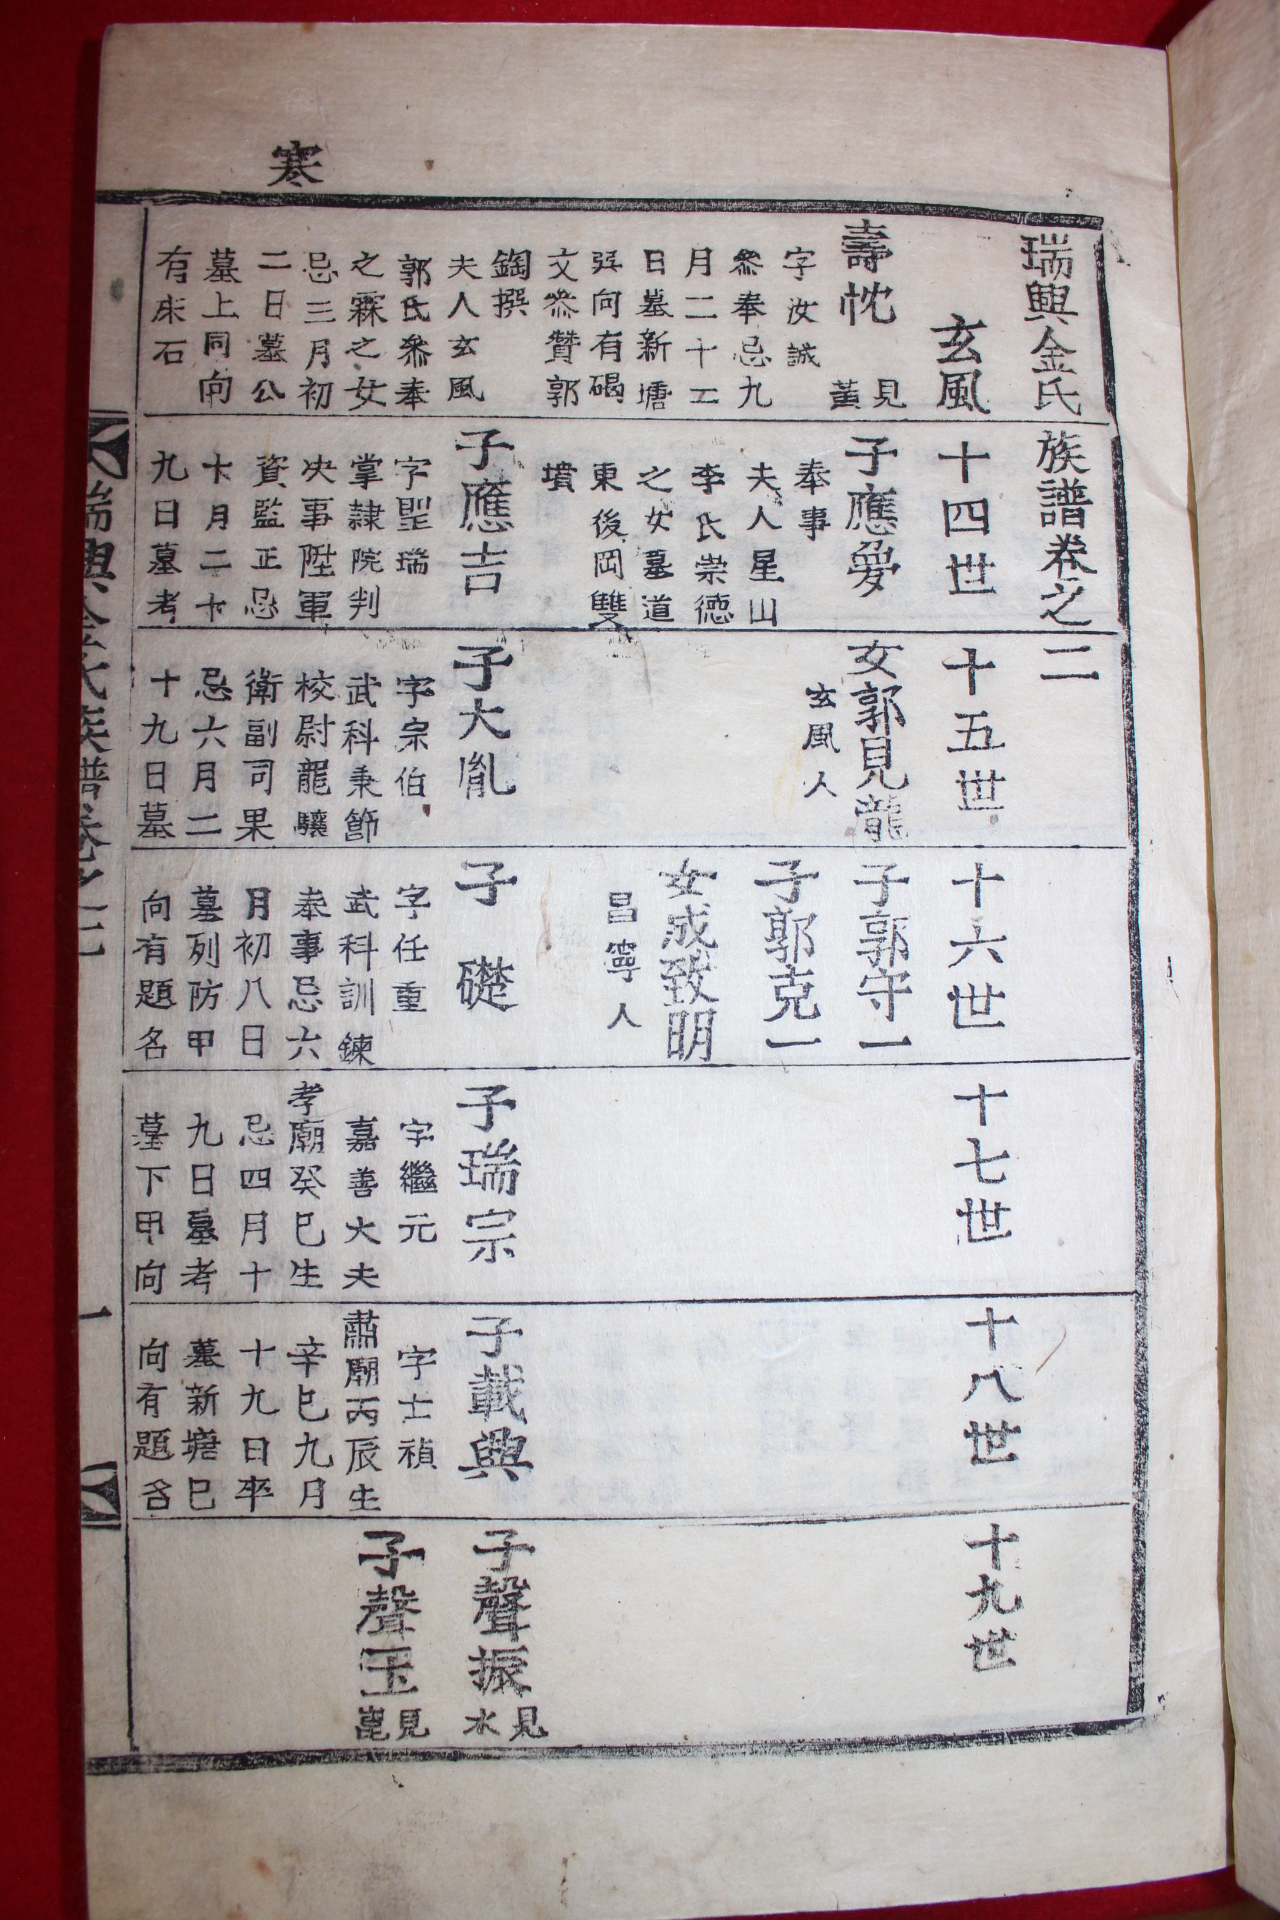 寒
瑞興金氏族譜卷之二
玄風
十四世
十五世
十六世
十七世
十八世
十九世
壽忱
見
黃
字汝誠
叅奉忌九
月二十二
日墓新塘
巽向有碣
文叅贊郭
鋾撰
夫人玄風
郭氏叅奉
之霖之女
忌三月初
二日墓公
墓上同向
有床石
子應愛
奉事
夫人星山
李氏崇德
之女墓道
東後岡雙
墳
子應吉
字聖瑞
掌隷院判
决事陞軍
資監正忌
十月二十
九日墓考
女郭見龍
玄風人
子大胤
字宗伯
武科秉節
校尉龍驤
衛副司果
忌六月二
十九日墓
子郭守一
子郭克一
女成致明
昌寧人
子礎
字任重
武科訓鍊
奉事忌六
月初八日
墓列防甲
向有題名
子瑞宗
字繼元
嘉善大夫
孝廟癸巳生
忌四月十
九日墓考
墓下甲向
子載興
字士禎
肅廟丙辰生
辛巳九月
十九日卒
墓新塘巳
向有題名
子聲振
見
水
子聲玉
見
崑
瑞興金氏族譜卷之二
一